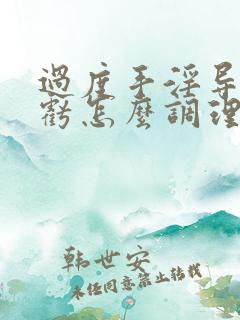 過度手淫导
虧怎麼調理
韩世安
未经同意禁止转载